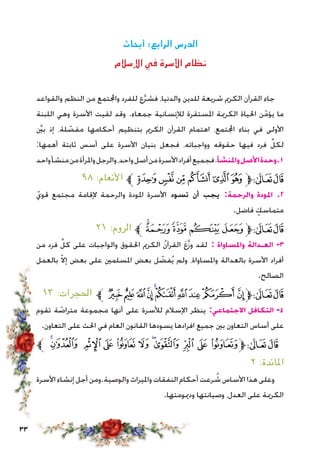 الدرس الرابع: أبحاث
نظام الأسرة في الإسلام
جاء القرآن الكريم شريعة للدين والدنيا، فشرَّع للفرد والمجتمع من النظم والقواعد
ما يؤمّن الحياة الكريمة المستقرة للإنسانية جمعاء. وقد لقيت الأسرة وهي اللبنة
الأولى في بناء المجتمع، اهتمام القرآن الكريم بتنظيم أحكامها مفصّلة، إذ بيَّن
لكلّ فرد فيها حقوقه وواجباته، فجعل بنيان الأسرة على أسس ثابتة أهمها:
١. وحدة الأصل والمنشأ: فجميع أفراد الأسرة من أصل واحد، والرجل والمرأة من منشأ واحد
قَالَ تَعَالَىٰ: ﴿ وَهُوَ ٱلَّذِىٓ أَنشَأَكُم مِّن نَّفْسٍ وَٰحِدَةٍ ﴾ الأنعام: ٩٨
٢. المودة والرحمة: يجب أن تسود الأسرة المودة والرحمة لإقامة مجتمع قويّ
متماسكٍ فاضل.
قَالَ تَعَالَىٰ: ﴿ وَجَعَلَ بَيْنَكُم مَّوَدَّةً وَرَحْمَةً ﴾ الروم: ٢١
٣- العدالة والمساواة : لقد وزَّعَ القرآنُ الكريم الحقوق والواجبات على كلّ فرد من
أفراد الأسرة بالعدالة والمساواة، ولم يُفضّل بعض المسلمين على بعض إلاّ بالعمل
الصالح.
قَالَ تَعَالَىٰ: ﴿ إِنَّ أَكْرَمَكُمْ عِندَ ٱللَّهِ أَتْقَىٰكُمْ إِنَّ ٱللَّهَ عَلِيمٌ خَبِيرٌ ﴾ الحجرات: ١٣
٤- التكافل الاجتماعي: ينظر الإسلام للأسرة على أنها مجموعة متراصّة تقوم
على أساس التعاون بين جميع افرادها يسودها القانون العام في الحث على التعاون.
قَالَ تَعَالَىٰ: ﴿ وَتَعَاوَنُوا۟ عَلَى ٱلْبِرِّ وَٱلتَّقْوَىٰ وَلَا تَعَاوَنُوا۟ عَلَى ٱلْإِثْمِ وَٱلْعُدْوَٰنِ ﴾
المائدة: ٢
وعلى هذا الأساس شُرعت أحكام النفقات والميراث والوصية، ومن أجل إنشاء الأسرة
الكريمة على العدل، وصيانتها وديمومتها.
٣٣